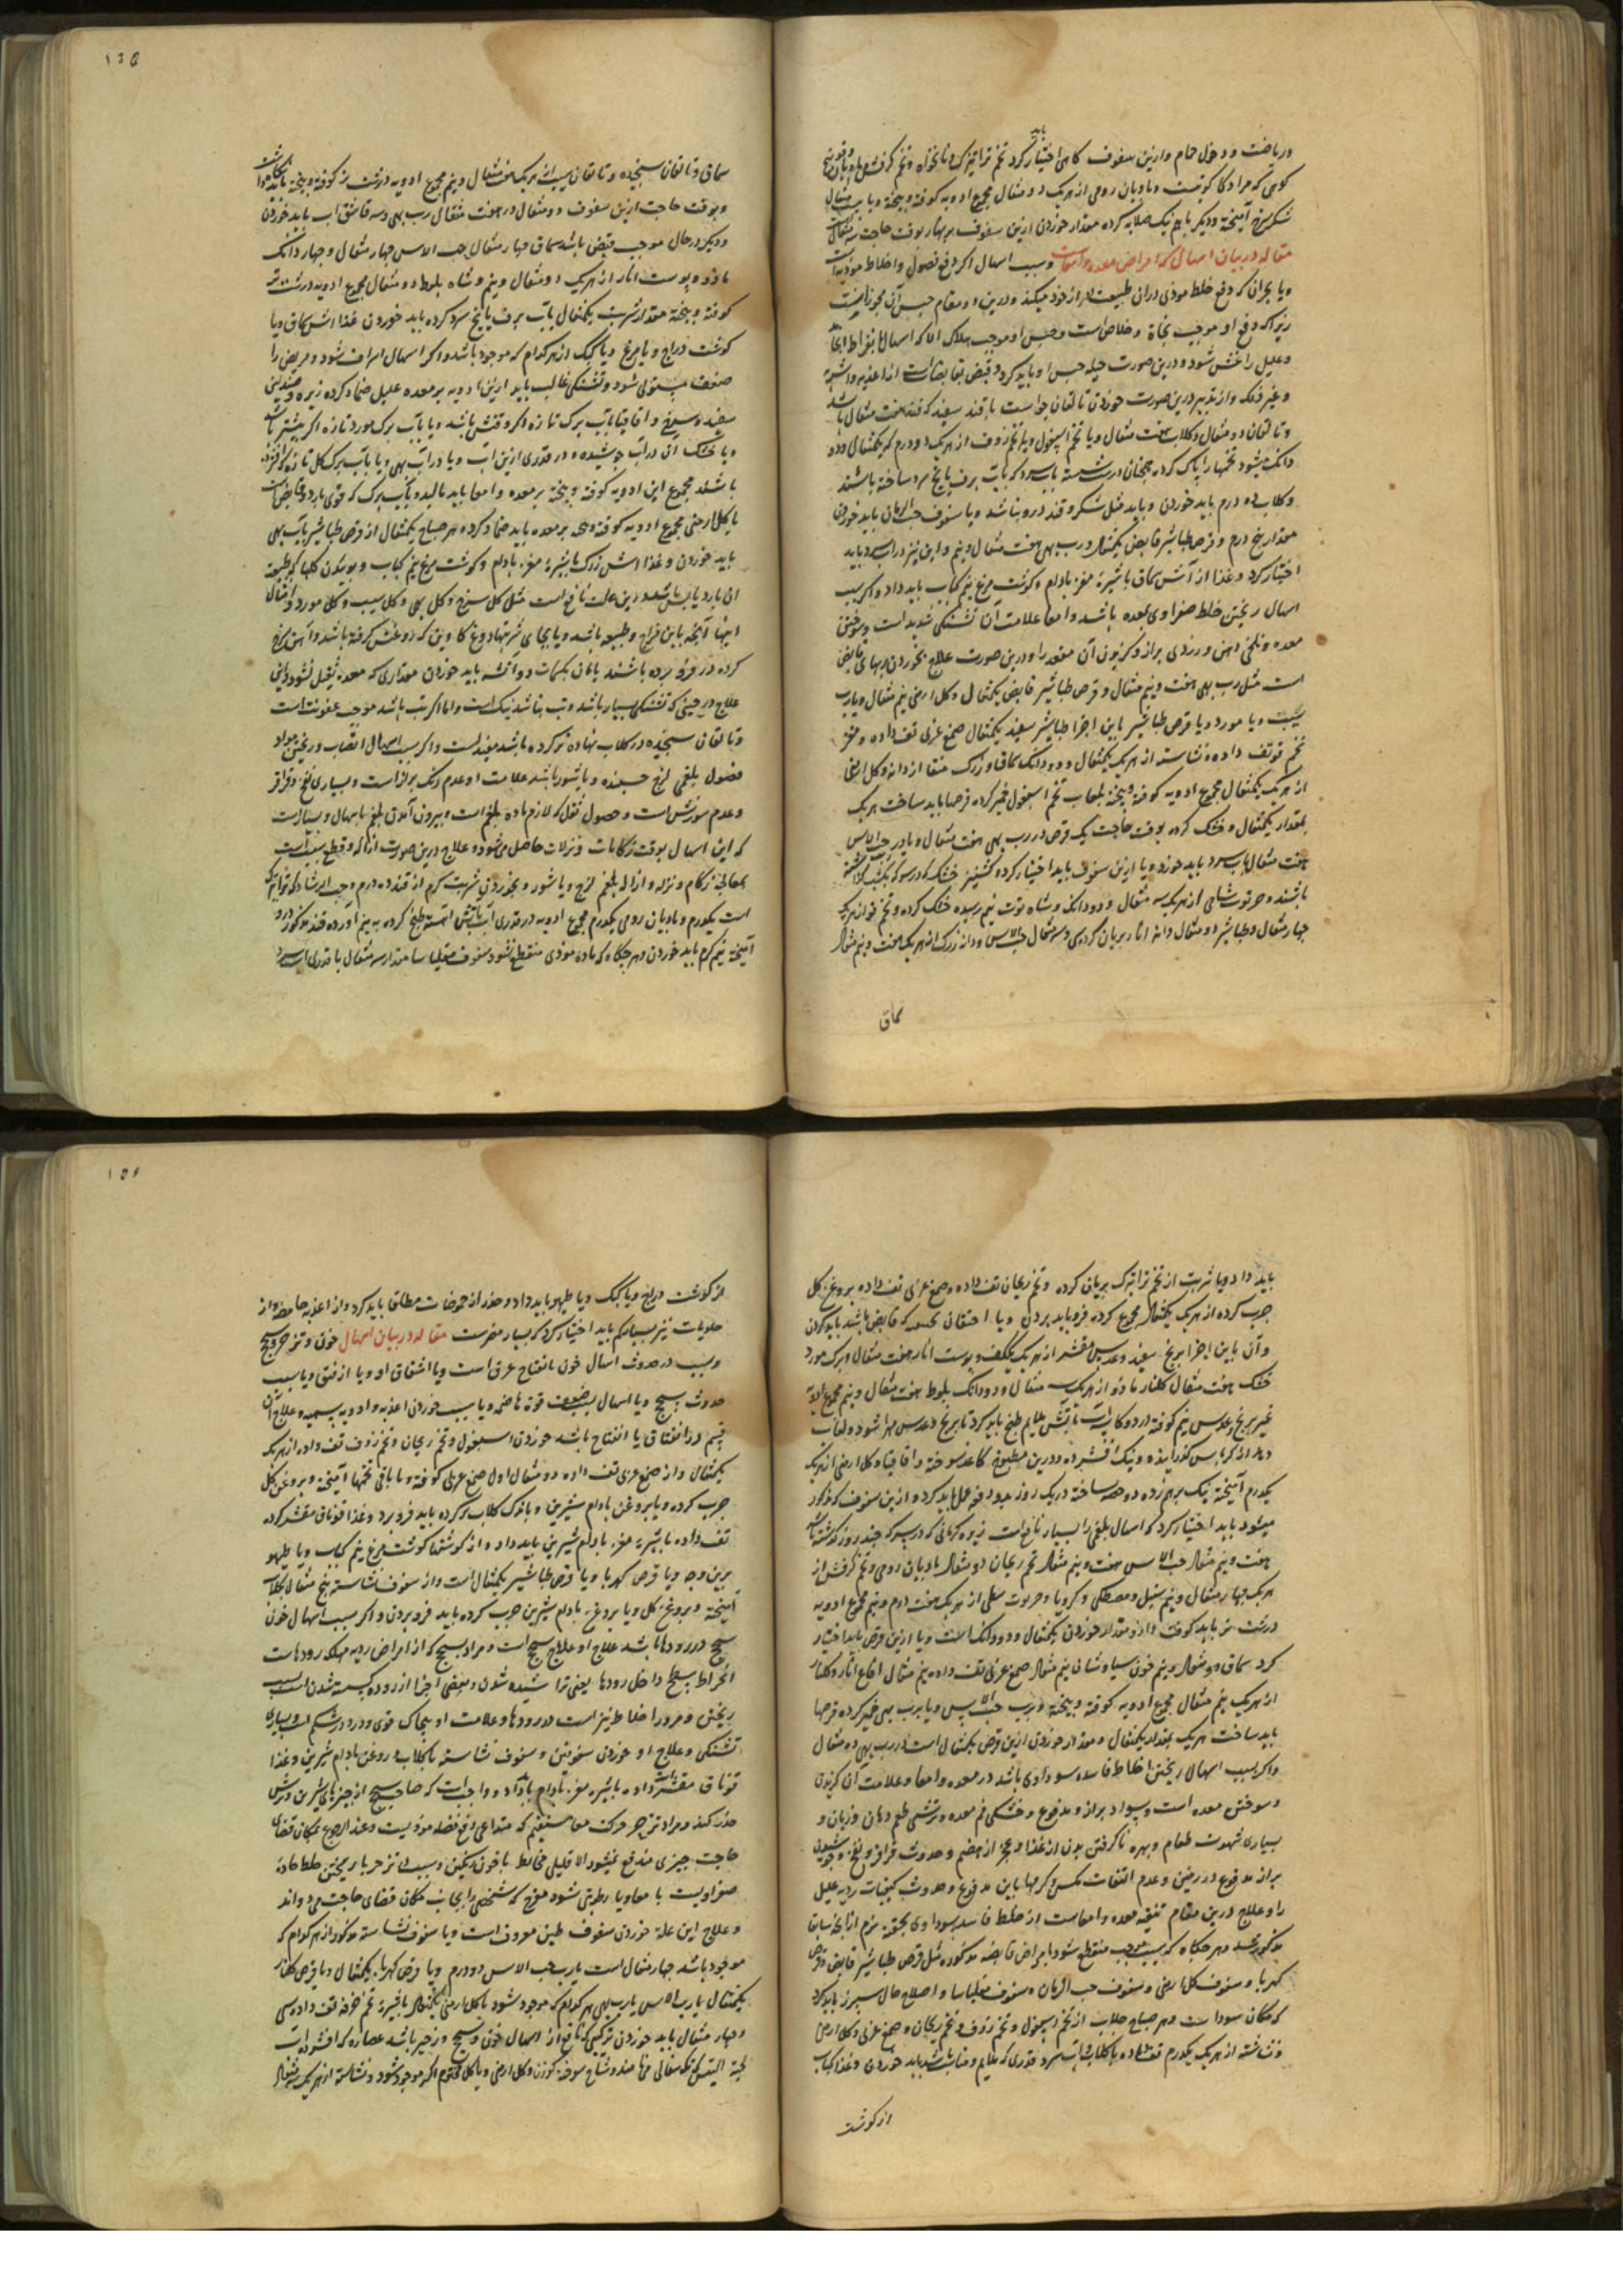 باید
وریاضت و دخول حمام و ازین سفوف گاهی اختیار کرد تخم تراتیزک و نانخواه و تخم کرفس
کوهی که مراد کاکوتیست و بادیان رومی از هریک دو مثقال مجموع ادویه کوفته و بیخته و با بیست مثقال
شکر سرخ آمیخته و دیگر باهم نیک صلایه کرده مقدار خوردن ازین سفوف بوقت حاجت سه مثقال است
مقاله در بیان اسهال که امراض معده و امعاست وسبب اسهال اگر دفع فضول و اخلاط موذیه است
ویا بحران که دفع خلط موذی دران طبیعت از خود میکند و درین دو مقام حبس آن مجوز نیست
زیراکه دفع او موجب نجاة و خلاص است و حبس او موجب هلاک الا که اسهال بافراط انجامد
وعلیل را غش شود و درین صورت حیله حبس او باید کرد و قبض بقابضات از اغذیه و اشربه
وغیر ذلک و از تدبیر درین صورت خوردن تالقان جو است با قند سفید که قند هفت مثقال باشد
وتالقان دو مثقال و گلاب هفت مثقال ویا تخم اسپغول ویا تخم زوف از هریک دو درم که یکمثقال و دو
دانگ میشود تخمها را پاک کرده همچنان درست شسته بآب سرد که بآب برف یا یخ سرد ساخته باشند
وگلاب ده درم باید خوردن و باید مثل شکر و قند درو نباشد ویا سفوف حب الرمان باید خوردن
مقدار پنج درم و قرص طباشیر قابض یکمثقال و رب بهی هفت مثقال و نیم و این نیز در آب سرد باید
اختیار کرد و غذا از آش سماق با شیرهٔ مغز بادام و گوشت مرغ نیم کباب باید داد و اگر سبب
اسهال ریختن خلط صفراوی بمعده باشد و امعا علامت آن تشنگی شدید است و سوختن
معده و تلخی دهن و زردی براز و گزیدن آن مقعد را و درین صورت علاج بخوردن ربهای قابض
است مثل رب بهی هفت و نیم مثقال و قرص طباشیر قابض یکمثقال و گل ارمنی نیم مثقال ویا رب
سیب ویا مورد ویا قرص طباشیر باین اجزا طباشیر سفید یکمثقال صمغ عربی تف داده و مغز
تخم تف داده و نشاسته از هریک یکمثقال و دو دانگ سماق و زرک منقا از دانه و گل ارمنی
از هریک یکمثقال مجموع ادویه کوفته و بیخته بلعاب تخم اسبغول خمیر کرده قرصها باید ساخت هریک
بمقدار یکمثقال و خشک کرده بوقت حاجت یک قرص در رب بهی هفت مثقال ویا در رب حب الاس
هفت مثقال بآب سرد باید خورد ویا ازین سفوف باید اختیار کرده گشنیز خشک که در سرکه یکشب گذاشته
باشند و خرنوب شامی از هریک سه مثقال و دو دانگ و شاه توت نیم رسیده خشک کرده و تخم
چهار مثقال و طباشیر دو مثقال دانه انار بریان کرده سی و سه مثقال حب الاس و دانه زرک از هریک هفت و نیم مثقال
سماق
سماق و تالقان سنجیده و تالقان سیب از هریک هفت مثقال و نیم مجموع ادویه درشت تر کوفته و بیخته باید نگاه داشت
وبوقت حاجت ازین سفوف دو مثقال در هفت مثقال رب بهی و سه قاشق آب باید خوردن
و دیگر در حال موجب قبض باشد سماق چهار مثقال حب الاس چهار مثقال و چهار دانگ
مازو و پوست انار از هریک دو مثقال و نیم و شاه بلوط دو مثقال مجموع ادویه درشت تر
کوفته و بیخته مقدار شربت یکمثقال بآب برف یا یخ سرد کرده باید خوردن غذا آش سماق ویا
گوشت دراج ویا مرغ ویا کبک از هرکدام که موجود باشد و اگر اسهال اسراف شود و مریض را
ضعف مستولی شود و تشنگی غالب باید ازین ادویه بر معده علیل ضماد کرده زیره و صندلین
سفید و سرخ و اقاقیا بآب برگ تازه اگر وقتش باشد ویا بآب برگ مورد تازه اگر میسر باشد
ویا خشک آن درآب جوشیده و در قدری ازین آب ویا درآب بهی ویا بآب برگ گل تازه
باشند مجموع این ادویه کوفته و بیخته بر معده و امعا باید مالید
با گل ارمنی مجموع ادویه کوفته و بیخته بر معده باید ضماد کرده هر صباح یکمثقال از قرص طباشیر بآب بهی
باید خوردن و غذا آش زرک با شیرهٔ مغز بادام و گوشت مرغ نیم کباب و بوئیدن گلها که طبیعت
آن بارد یابس باشد درین علت نافع است مثل گل سرخ و گل بهی و گل سیب و گل مورد و امثال
اینها آنچه باین مزاج و طبیعه باشد ویا بجای شربتها دوغ گاو این که روغنش گرفته باشد و آهن سرخ
کرده درو فرو برده باشند بانان کماث دو آتشه باید خوردن مقداری که معده ثقیل نشود و این
علاج در حینی که تشنگی بسیار باشد و تب نباشد نیک است و اما اگر تب باشد موجب عفونت است
وتالقان سنجیده در گلاب نهاده تر کرده باشند مفید است و اگر سبب اسهال انصباب و ریختن مواد
فضول بلغمی لزج چسپنده ویا شور باشد علامت او عدم رنگ براز است و بسیاری نفخ و قراقر
وعدم سوزش است و حصول ثقل که لازم ماده بلغم است و بیرون آمدن بلغم باسهال و بسیارست
که این اسهال بوقت زکامات و نزلات حاصل می شود و علاج درین صورت ازاله و قطع سبب است
بمعالجه زکام و نزله و ازاله بلغم لزج ویا شور و بخوردن شربت گرم از قند ده درم و حب الرشاد که تراتیزک
است یکدرم و بادیان رومی یکدرم مجموع ادویه در قدری آب بآتش آهسته طبخ کرده به نیم آورده قند مذکور درو
آمیخته نیم گرم باید خوردن و هر چگاه که ماده موذی منقطع نشود سفوف مقلیاسا مقدار سه مثقال با قدری آب سرد
باید داد ویا شربت از تخم تراتیزک بریان کرده و تخم ریحان تف داده و صمغ عربی تف داده بروغن گل
چرب کرده از هریک یکمثقال مجموع کرده فرو باید بردن ویا احتقان بحقنه که قابض باشد باید کردن
وآن باین اجزا برنج سفید و عدس مقشر از هریک یککف و پوست انار هفت مثقال و برگ مورد
خشک هفت مثقال گلنار مازو از هریک سه مثقال و دو دانگ بلوط هفت مثقال و نیم مجموع ادویه
غیر برنج و عدس نیم کوفته در دو کاسه آب بآتش ملایم طبخ باید کرد تا برنج و عدس مهرا شود و لعاب
دهد از کرباس گذرانیده و نیک افشرده و درین مطبوخ کاغذ سوخته و اقاقیا و گل ارمنی از هریک
یکدرم آمیخته نیک برهم زده دو حصه ساخته در یک روز بدو دفعه عمل باید کرد و ازین سفوف که مذکور
میشود باید اختیار کرد که اسهال بلغمی را بسیار نافع است زیره کرمانی که در سرکه چند روز گذشته باشد
هفت و نیم مثقال حب الاس هفت و نیم مثقال تخم ریحان دو مثقال بادیان رومی و تخم کرفس از
هریک چهار مثقال و نیم سنبل و مصطکی و کرویا و خرنوب نبطی از هریک هفت درم و نیم مجموع ادویه
درشت تر باید کوفت و از و مقدار خوردن یکمثقال و دو دانگ است ویا ازین قرص باید اختیار
کرد سماق دو مثقال و نیم خون سیاوشان نیم مثقال صمغ عربی تف داده نیم مثقال اقماع انار و گلنار
از هریک نیم مثقال مجموع ادویه کوفته و بیخته و برب حب الاس ویا برب بهی خمیر کرده قرصها
باید ساخت هریک بمقدار یکمثقال و مقدار خوردن ازین قرص یکمثقال است در رب بهی ده مثقال
واگر سبب اسهال ریختن اخلاط فاسده سوداوی باشد در معده و امعا و علامت آن گزیدن
و سوختن معده است و سواد براز و مدفوع و خشکی فم معده و ترشی طعم دهان و زبان و
بسیاری شهوت طعام و بهره ناگرفتن بدن از غذا و عجز از هضم و حدوث قراقر و نفخ و جوشیدن
براز مدفوع در زمین و عدم التفات مگس و کرمها باین مدفوع و حدوث کیفیات ردیه علیل
را و علاج درین مقام تنقیه معده و امعاست از خلط فاسد سوداوی بحقنه نرم از آنچه سابقا
مذکور شد و هر چگاه که سبب موجب منقطع شود باقراض قابضه مذکوره مثل قرص طباشیر قابض و قرص
کهربا و سفوف گل ارمنی و سفوف حب الرمان و سفوف مقلیاسا و اصلاح حال سپرز باید کرد
که مکان سوداست و هر صباح جلاب از تخم اسبغول و تخم زوف و تخم ریحان و صمغ عربی و گل ارمنی
و نشاسته از هریک یکدرم تف داده با گلاب و آب سرد قدری که ملایم و مناسب باشد باید خوردن و غذا کباب
از گوشت
از گوشت دراج ویا کبک ویا طیهو باید داد و حذر از حموضات مطلقا باید کرد و از اغذیه حامضه و از
حلویات نیز بسیار کم باید اختیار کرد که بسیار مضرست مقاله در بیان اسهال خون و تزحر و سحج
وسبب در حدوث اسهال خون یا انفتاح عرق است ویا انشقاق او ویا از فتق ویا سبب
حدوث سحج ویا اسهال بسبب ضعف قوة هاضمه ویا بسبب خوردن اغذیه و ادویه سمیه و علاج آن
قسم در انشقاق یا انفتاح باشد خوردن اسبغول و تخم ریحان و تخم زوف تف داده از هریک
یکمثقال و از صمغ عربی تف داده دو مثقال اول صمغ عربی کوفته و با باقی تخمها آمیخته و بروغن گل
چرب کرده ویا بروغن بادام شیرین و با نوک گلاب تر کرده باید فرو برد و غذا قوناق مقشر کرده
تف داده با شیرهٔ مغز بادام شیرین باید داد و از گوشتها گوشت مرغ نیم کباب ویا طیهو
برین وجه ویا قرص کهربا ویا قرص طباشیر یکمثقال است و از سفوف نشاسته پنج مثقال بگلاب
آمیخته و بروغن گل ویا بروغن بادام شیرین چرب کرده باید فرو بردن و اگر سبب اسهال خون
سحج در رودها باشد علاج او علاج سحج است و مراد بسحج که از امراض ردیه مهلکه رودهاست
انخراط سطح داخل رودها یعنی تراشیده شدن و بعضی اجزا از روده گسسته شدن است بسبب
ریختن و مرور اخلاط تیز است در رودها و علامت او پیچاک قوی و درد در شکم است و بسیاری
تشنگی و علاج او خوردن سفوف طین و سفوف نشاسته با گلاب و روغن بادام شیرین و غذا
قوناق مقشر تف داده با شیره مغز بادام باید داد و واجب است که صاحب سحج از چیزهای شیرین و ترش
حذر کند و مراد تزحر حرکت معاء مستقیم که متداعی دفع فضله موذیست و عند الرجوع بمکان قضای
حاجت چیزی مندفع نمیشود الا قلیلی مخالط با خون رنگین و سبب این تزحر یا ریختن خلط حاده
صفراویست با معا ویا رطوبتی شود مفرح که شخص را بجانب مکان قضای حاجت می دواند
و علاج این علة خوردن سفوف طین معروف است ویا سفوف نشاسته مذکور از هرکدام که
موجود باشد چهار مثقال است با رب حب الاس دو درم ویا قرص کهربا یکمثقال ویا قرص گلنار
یکمثقال با رب الاس یا رب بهی هرکدام که موجود شود با گل ارمنی یکمثقال با شیرهٔ تخم خرفه تف داده سی
و چهار مثقال باید خوردن ترکیبی که نافع از اسهال خون و سحج و زحیر باشد عصاره که افشرده است
لحیة التیس شاخ سوخته گوزن و گل ارمنی ویا گل مختوم اگر موجود شود و نشاسته از هریک